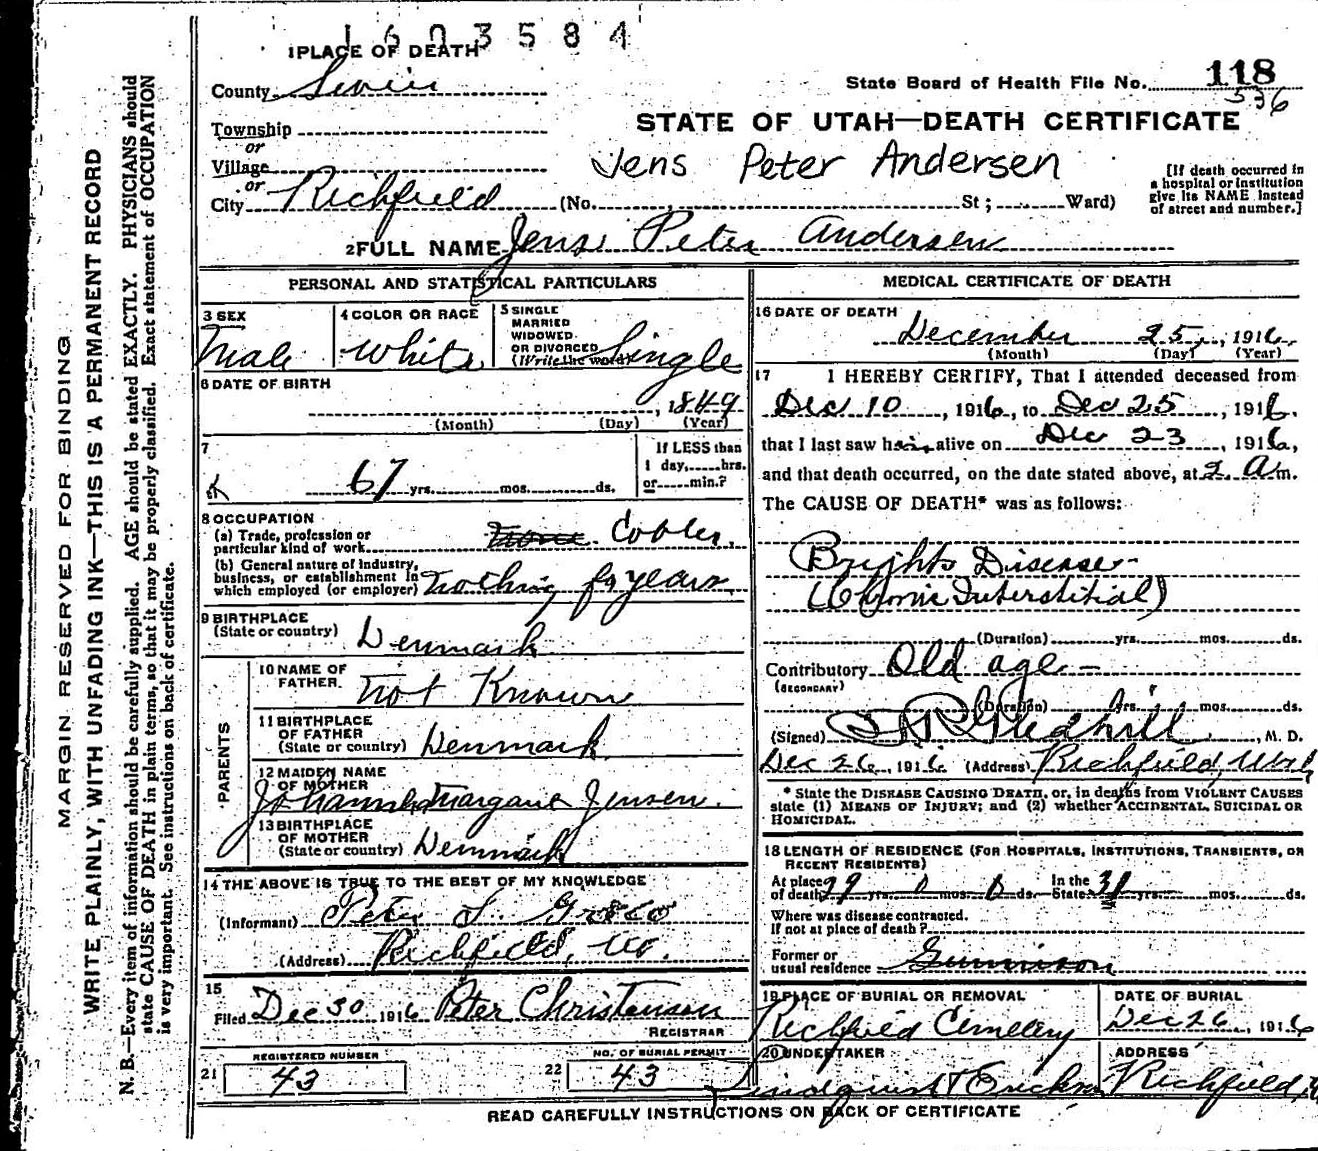 1603584
1 PLACE OF DEATH
County Sevier
State Board of Health File No. 118
536
Township
or
Village
or
City Richfield (No. St; Ward)
STATE OF UTAH—DEATH CERTIFICATE
Jens Peter Andersen
[If death occurred in
a hospital or institution
give its NAME instead
of street and number.]
2 FULL NAME Jens Peter Andersen
PERSONAL AND STATISTICAL PARTICULARS
3 SEX
Male
4 COLOR OR RACE
White
5 SINGLE
MARRIED
WIDOWED
OR DIVORCED
(Write the word) Single
6 DATE OF BIRTH
, 1849
(Month) (Day) (Year)
7
67 yrs. mos. ds.
If LESS than
1 day, hrs.
or min.?
8 OCCUPATION
(a) Trade, profession or
particular kind of work None Cobler.
(b) General nature of industry,
business, or establishment in
which employed (or employer) Nothing f9 years
9 BIRTHPLACE
(State or country) Denmark
PARENTS
10 NAME OF
FATHER. Not Known
11 BIRTHPLACE
OF FATHER
(State or country) Denmark
12 MAIDEN NAME
OF MOTHER
Margane Jensen.
13 BIRTHPLACE
OF MOTHER
(State or country) Denmark
14 THE ABOVE IS TRUE TO THE BEST OF MY KNOWLEDGE
(Informant) Peter
(Address) Richfield,
15
Filed Dec 30 1916 Peter Christensen
REGISTRAR
21 REGISTERED NUMBER
43
22 NO. OF BURIAL PERMIT
43
MEDICAL CERTIFICATE OF DEATH
16 DATE OF DEATH
December 25, 1916
(Month) (Day) (Year)
17 I HEREBY CERTIFY, That I attended deceased from
Dec 10, 1916, to Dec 25, 1916.
that I last saw him alive on Dec 23, 1916,
and that death occurred, on the date stated above, at 2 A m.
The CAUSE OF DEATH* was as follows:
Brights Disease
(Chronic Interstitial)
(Duration) yrs. mos. ds.
Contributory Old age -
(SECONDARY)
(Duration) yrs. mos. ds.
(Signed) Gledhill, M. D.
Dec 26, 1916 (Address) Richfield, Utah
* State the DISEASE CAUSING DEATH, or, in deaths from VIOLENT CAUSES
state (1) MEANS OF INJURY; and (2) whether ACCIDENTAL, SUICIDAL OR
HOMICIDAL.
18 LENGTH OF RESIDENCE (FOR HOSPITALS, INSTITUTIONS, TRANSIENTS, OR
RECENT RESIDENTS)
At place
of death 29 yrs. 0 mos. 0 ds. In the
State yrs. mos. ds.
Where was disease contracted.
If not at place of death?
Former or
usual residence Gunnison
19 PLACE OF BURIAL OR REMOVAL
Richfield Cemetery
DATE OF BURIAL
Dec 26, 1916
20 UNDERTAKER
ADDRESS
Richfield
READ CAREFULLY INSTRUCTIONS ON BACK OF CERTIFICATE
MARGIN RESERVED FOR BINDING
WRITE PLAINLY, WITH UNFADING INK—THIS IS A PERMANENT RECORD
N. B.—Every item of information should be carefully supplied. AGE should be stated EXACTLY. PHYSICIANS should
state CAUSE OF DEATH in plain terms, so that it may be properly classified. Exact statement of OCCUPATION
is very important. See instructions on back of certificate.